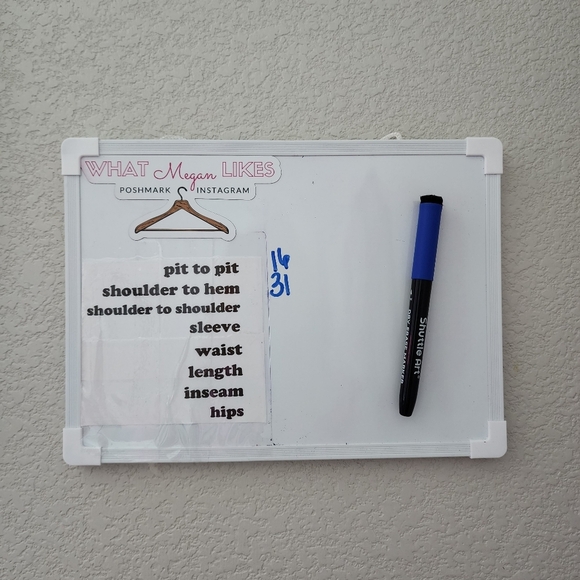 WHAT Megan LIKES
POSHMARK INSTAGRAM
pit to pit 16
shoulder to hem 31
shoulder to shoulder
sleeve
waist
length
inseam
hips
Shuttle Art
DRY ERASE MARKER